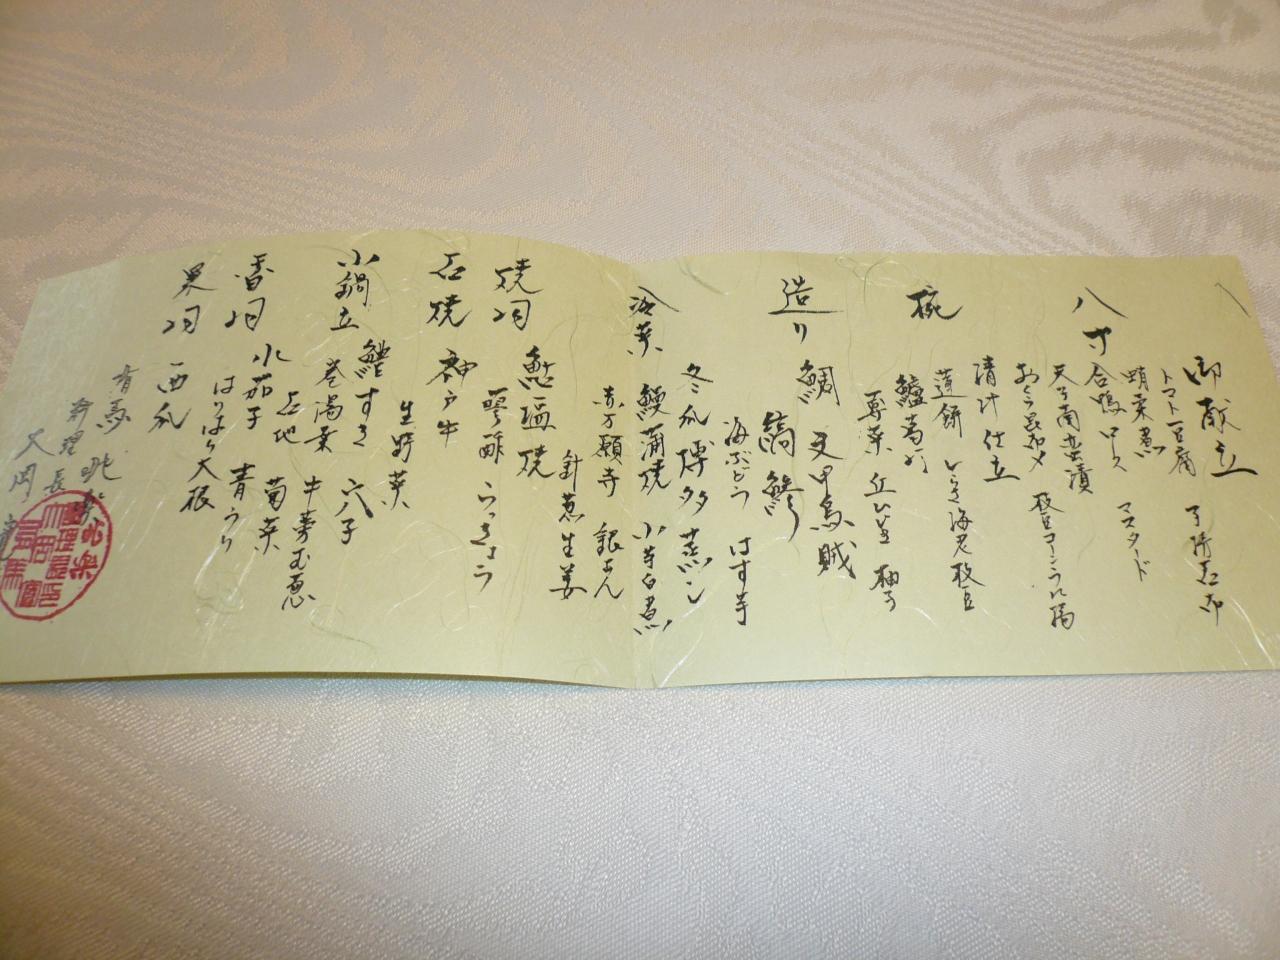 御献立
八寸
トマト豆腐
蛸柔煮
合鴨ロース マスタード
天子南蛮漬
おくら昆布〆 枝豆コーン
椀
清汁仕立
蓮餅 海老 枝豆
鱸葛打
蓴菜 柚子
造り
鯛 又甲烏賊
縞鯵
海ぶどう はす芋
冷菜
冬瓜博多蒸し
鰻蒲焼 小芋白煮
赤万願寺 銀あん
針葱生姜
焼肴
鮎塩焼
蓼酢 らっきょう
石焼
神戸牛
生野菜
小鍋立
鱧すき 穴子
巻湯葉 牛蒡 玉葱
石地 菊菜
香物
水茄子 青うり
はりはり大根
果物
西瓜
有馬
料理長
大岡